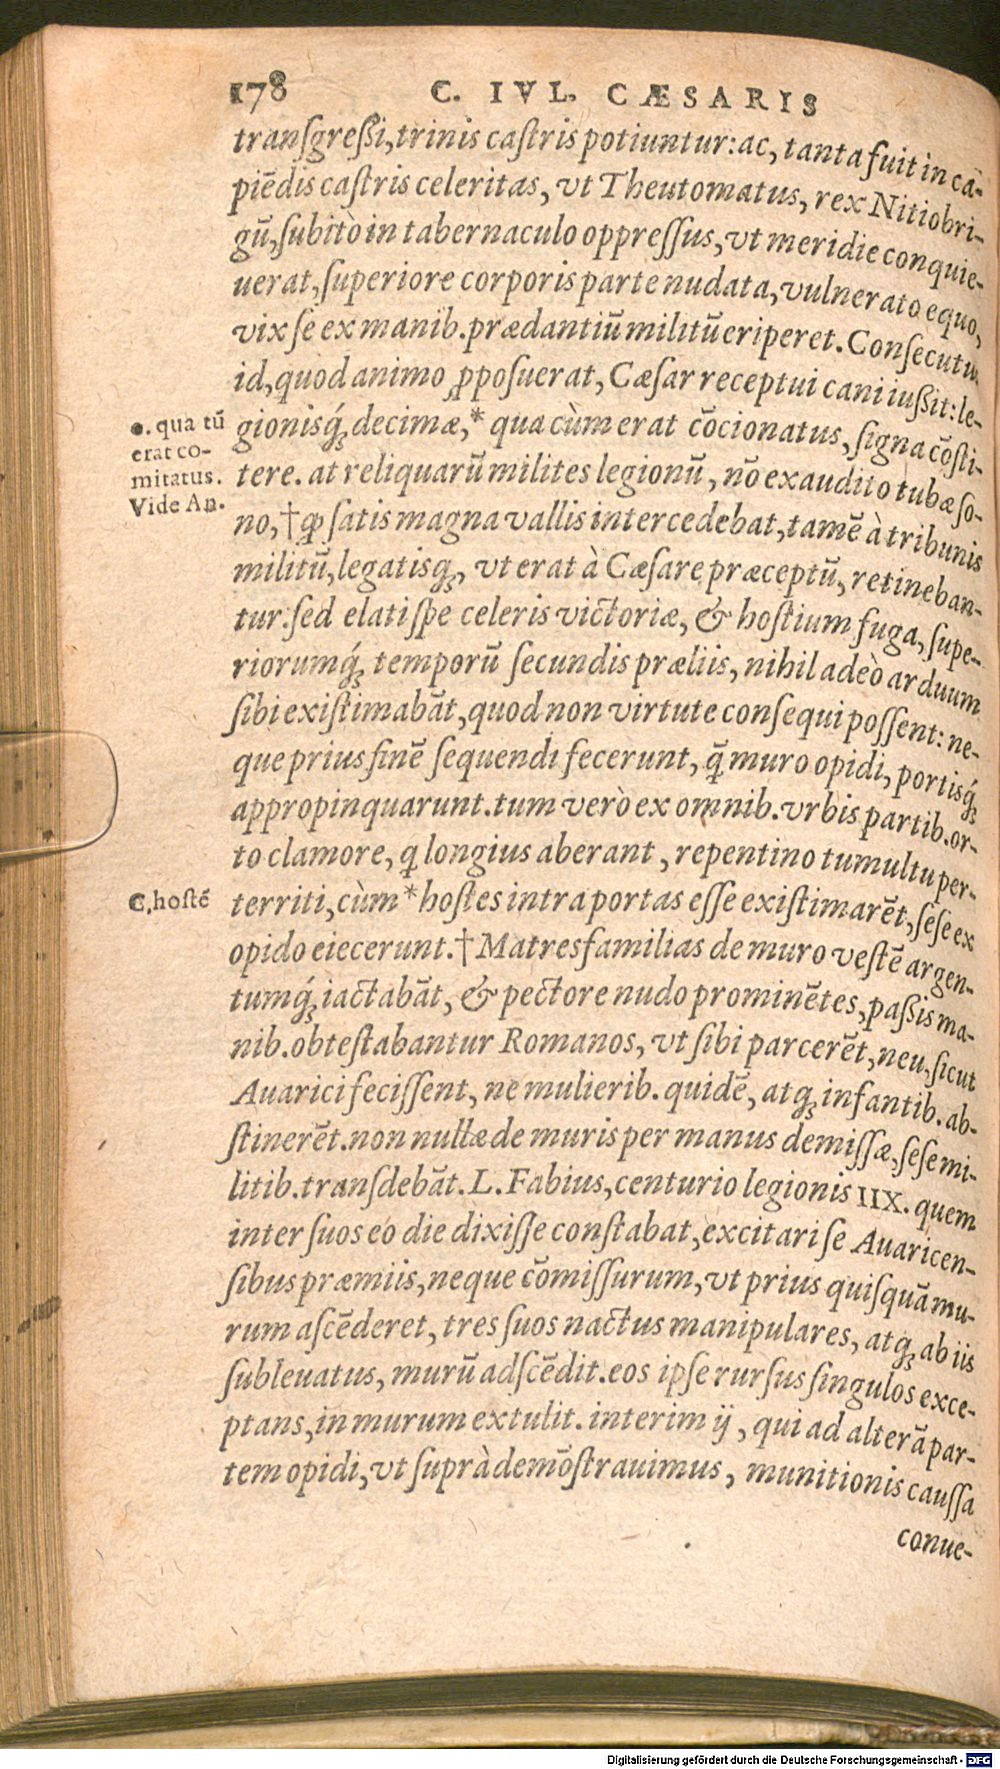 178 C. IVL. CÆSARIS
tranſgreßi, trinis caſtris potiuntur: ac, tanta fuit in ca-
piēdis caſtris celeritas, vt Theutomatus, rex Nitiobri-
gū, ſubitò in tabernaculo oppreſſus, vt meridie conquie-
uerat, ſuperiore corporis parte nudata, vulnerato equo,
vix ſe ex manib. prædantiū militū eriperet. Conſecutus
id, quod animo ꝓpoſuerat, Cæſar receptui cani iußit: le-
gionisq́ꝫ decimæ,* qua cùm erat cōcionatus, ſigna cōſti-
tere. at reliquarū milites legionū, nō exaudito tubæ ſo-
no, † ꝙ ſatis magna vallis intercedebat, tamē à tribunis
militū, legatisqꝫ, vt erat à Cæſare præceptū, retineban-
tur. ſed elati ſpe celeris victoriæ, & hoſtium fuga, ſupe-
riorumq́ꝫ temporū ſecundis præliis, nihil adeò arduum
ſibi exiſtimabāt, quod non virtute conſequi poſſent: ne-
que prius finē ſequendi fecerunt, q̄̃ muro opidi, portisq́ꝫ
appropinquarunt. tum verò ex omnib. vrbis partib. or-
to clamore, q longius aberant, repentino tumultu per-
territi, cùm * hoſtes intra portas eſſe exiſtimarēt, ſeſe ex
opido eiecerunt. † Matresfamilias de muro veſtē argen-
tumq́ꝫ iactabāt, & pectore nudo prominētes, paßis ma-
nib. obteſtabantur Romanos, vt ſibi parcerēt, neu, ſicut
Auarici feciſſent, ne mulierib. quidē, atqꝫ infantib. ab-
ſtinerēt. non nullæ de muris per manus demiſſæ, ſeſe mi-
litib. tranſdebāt. L. Fabius, centurio legionis IIX. quem
inter ſuos eo die dixiſſe conſtabat, excitari ſe Auaricen-
ſibus præmiis, neque cōmiſſurum, vt prius quiſquā mu-
rum aſcēderet, tres ſuos nactus manipulares, atqꝫ ab iis
ſubleuatus, murū adſcēdit. eos ipſe rurſus ſingulos exce-
ptans, in murum extulit. interim ij, qui ad alterā par-
tem opidi, vt ſuprà demōſtrauimus, munitionis cauſſa
conue-
●. qua tū
erat co-
mitatus.
Vide An.
C, hoſtē
Digitalisierung gefördert durch die Deutsche Forschungsgemeinschaft - DFG